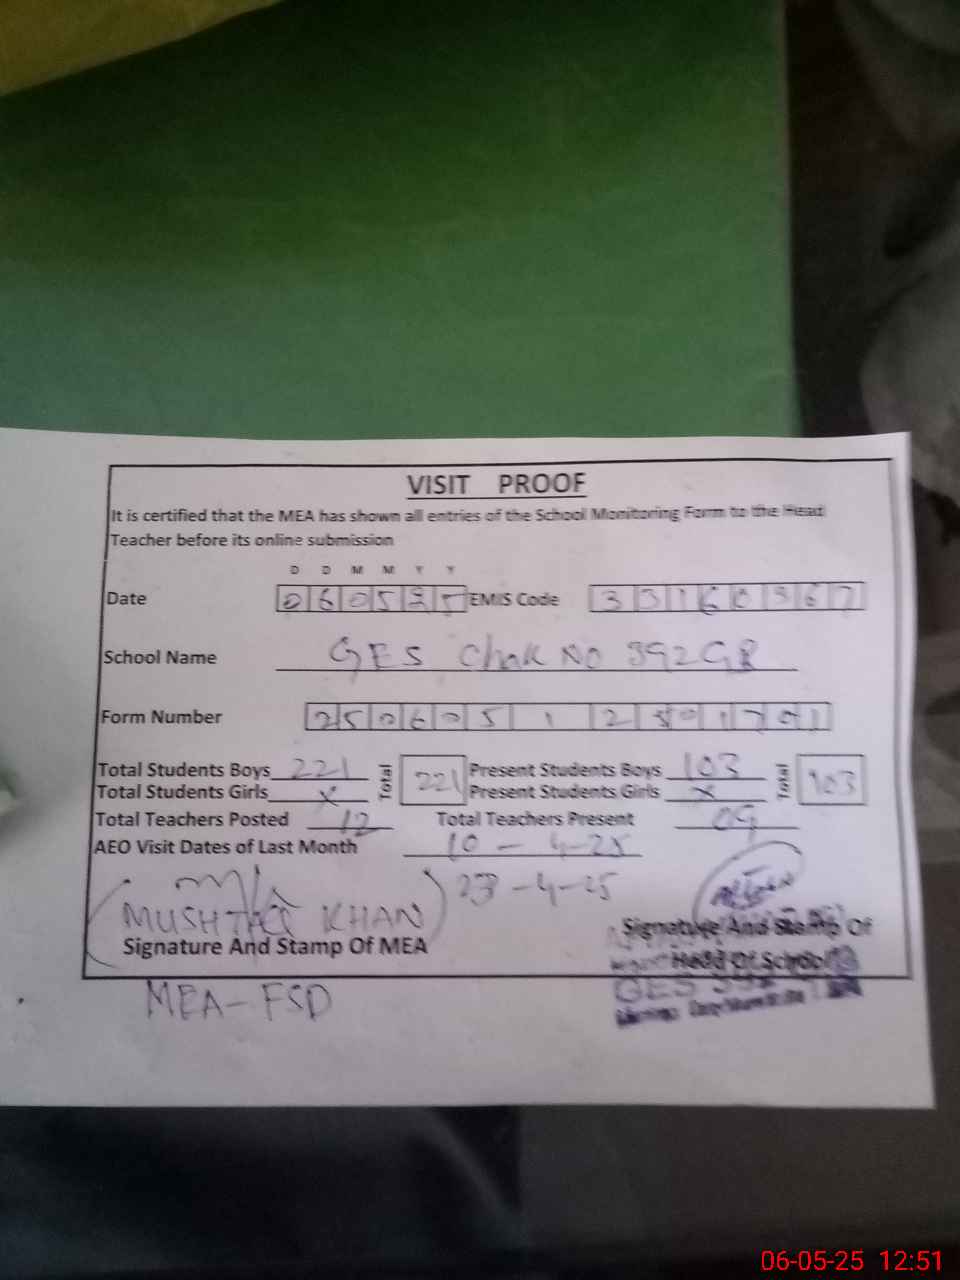 VISIT PROOF
It is certified that the MEA has shown all entries of the School Monitoring Form to the Head
Teacher before its online submission
D D M M Y Y
Date 060525 EMIS Code 33160367
School Name GES Chak No 392GB
Form Number
Total Students Boys 221 Total 221 Present Students Boys 103 Total 103
Total Students Girls X Present Students Girls X
Total Teachers Posted 12 Total Teachers Present 09
AEO Visit Dates of Last Month 10-4-25
23-4-25
MUSHTAQ KHAN
Signature And Stamp Of MEA Signature And Stamp Of
Head Of School
MEA-FSD
GES 392
06-05-25 12:51